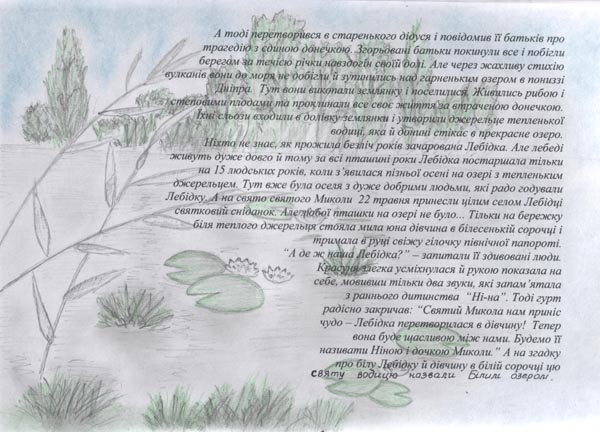 А тоді перетворився в старенького дідуся і повідомив її батьків про
трагедію з єдиною донечкою. Згорьовані батьки покинули все і побігли
берегом за течією річки навздогін своїй долі. Але через жахливу стихію
вулканів вони до моря не добігли й зупинились над гарненьким озером в пониззі
Дніпра. Тут вони викопали землянку і поселилися. Живились рибою і
степовими плодами та проклинали все своє життя за втраченою донечкою.
Їхні сльози входили в долівку землянки і утворили джерельце тепленької
водиці, яка й донині стікає в прекрасне озеро.
Ніхто не знає, як прожила безліч років зачарована Лебідка. Але лебеді
живуть дуже довго й тому за всі пташині роки Лебідка постаршала тільки
на 15 людських років, коли з'явилася пізньої осені на озері з тепленьким
джерельцем. Тут вже була оселя з дуже добрими людьми, які радо годували
Лебідку. А на свято святого Миколи 22 травня принесли цілим селом Лебідці
святковий сніданок. Але любої пташки на озері не було... Тільки на бережку
біля теплого джерельця стояла мила юна дівчина в білесенькій сорочці і
тримала в руці свіжу гілочку північної папороті.
“А де ж наша Лебідка?” – запитали її здивовані люди.
Красуня злегка усміхнулася й рукою показала на
себе, мовивши тільки два звуки, які запам'ятала
з раннього дитинства “Ні-на”. Тоді гурт
радісно закричав: “Святий Микола нам приніс
чудо – Лебідка перетворилася в дівчину! Тепер
вона буде щасливою між нами. Будемо її
називати Ніною і дочкою Миколи.” А на згадку
про білу Лебідку й дівчину в білій сорочці цю
святу водицю назвали Білим озером.